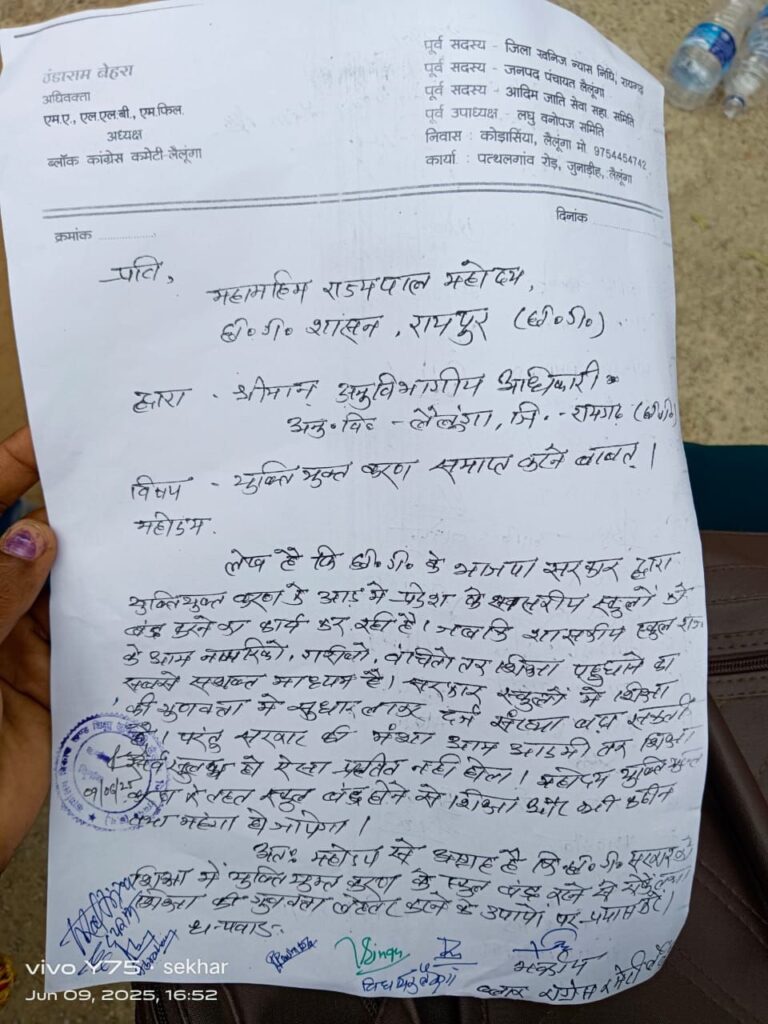 ठंडाराम बेहरा
अधिवक्ता
एम.ए., एल.एल.बी., एम.फिल.
अध्यक्ष
ब्लॉक कांग्रेस कमेटी-लैलूंगा
पूर्व सदस्य - जिला खनिज न्यास निधि, रायगढ़
पूर्व सदस्य - जनपद पंचायत लैलूंगा
पूर्व सदस्य - आदिम जाति सेवा सहा. समिति
पूर्व उपाध्यक्ष - लघु वनोपज समिति
निवास : कोड़ासिया, लैलूंगा मो. 9754454742
कार्या : पत्थलगांव रोड़, जुनाडीह, लैलूंगा
क्रमांक ....................
दिनांक ....................
प्रति,
महामहिम राज्यपाल महोदय,
छ०ग० शासन, रायपुर (छ०ग०)
द्वारा - श्रीमान अनुविभागीय अधिकारी
अनु०वि० - लैलूंगा, जि. - रायगढ़ (छ०ग०)
विषय - युक्तियुक्त करण समाप्त करने बाबत् ।
महोदय,
लेख है कि छ०ग० के भाजपा सरकार द्वारा
युक्तियुक्त करण के आड़ में प्रदेश के शासकीय स्कूलों को
बंद करने का कार्य कर रही है। जबकि शासकीय स्कूल
के आम नागरिको, गरीबो, वंचितो तर शिक्षा पहुंचाने का
सबसे सशक्त माध्यम है। सरकार स्कूलों में शिक्षा
की गुणवत्ता में सुधार लाकर दर्ज संख्या बढ़ा सकती
है। परंतु सरकार की मंशा आम आदमी तर शिक्षा
सुलभ हो ऐसा प्रतित नही होता। महोदय युक्तियुक्त
करण के तहत स्कूल बंद होने से शिक्षा और भी कठीन
तथा महंगा हो जायेगा।
अतः महोदय से आग्रह है कि छ०ग० सरकार को
शिक्षा में युक्तियुक्त करण के स्कूल बंद करने से रोके तथा
शिक्षा की गुणवत्ता बेहतर करने के उपायो पर प्रयास करें।
धन्यवाद
09/06/25
Singh
ब्लाक कांग्रेस कमेटी
vivo Y75 sekhar
Jun 09, 2025, 16:52